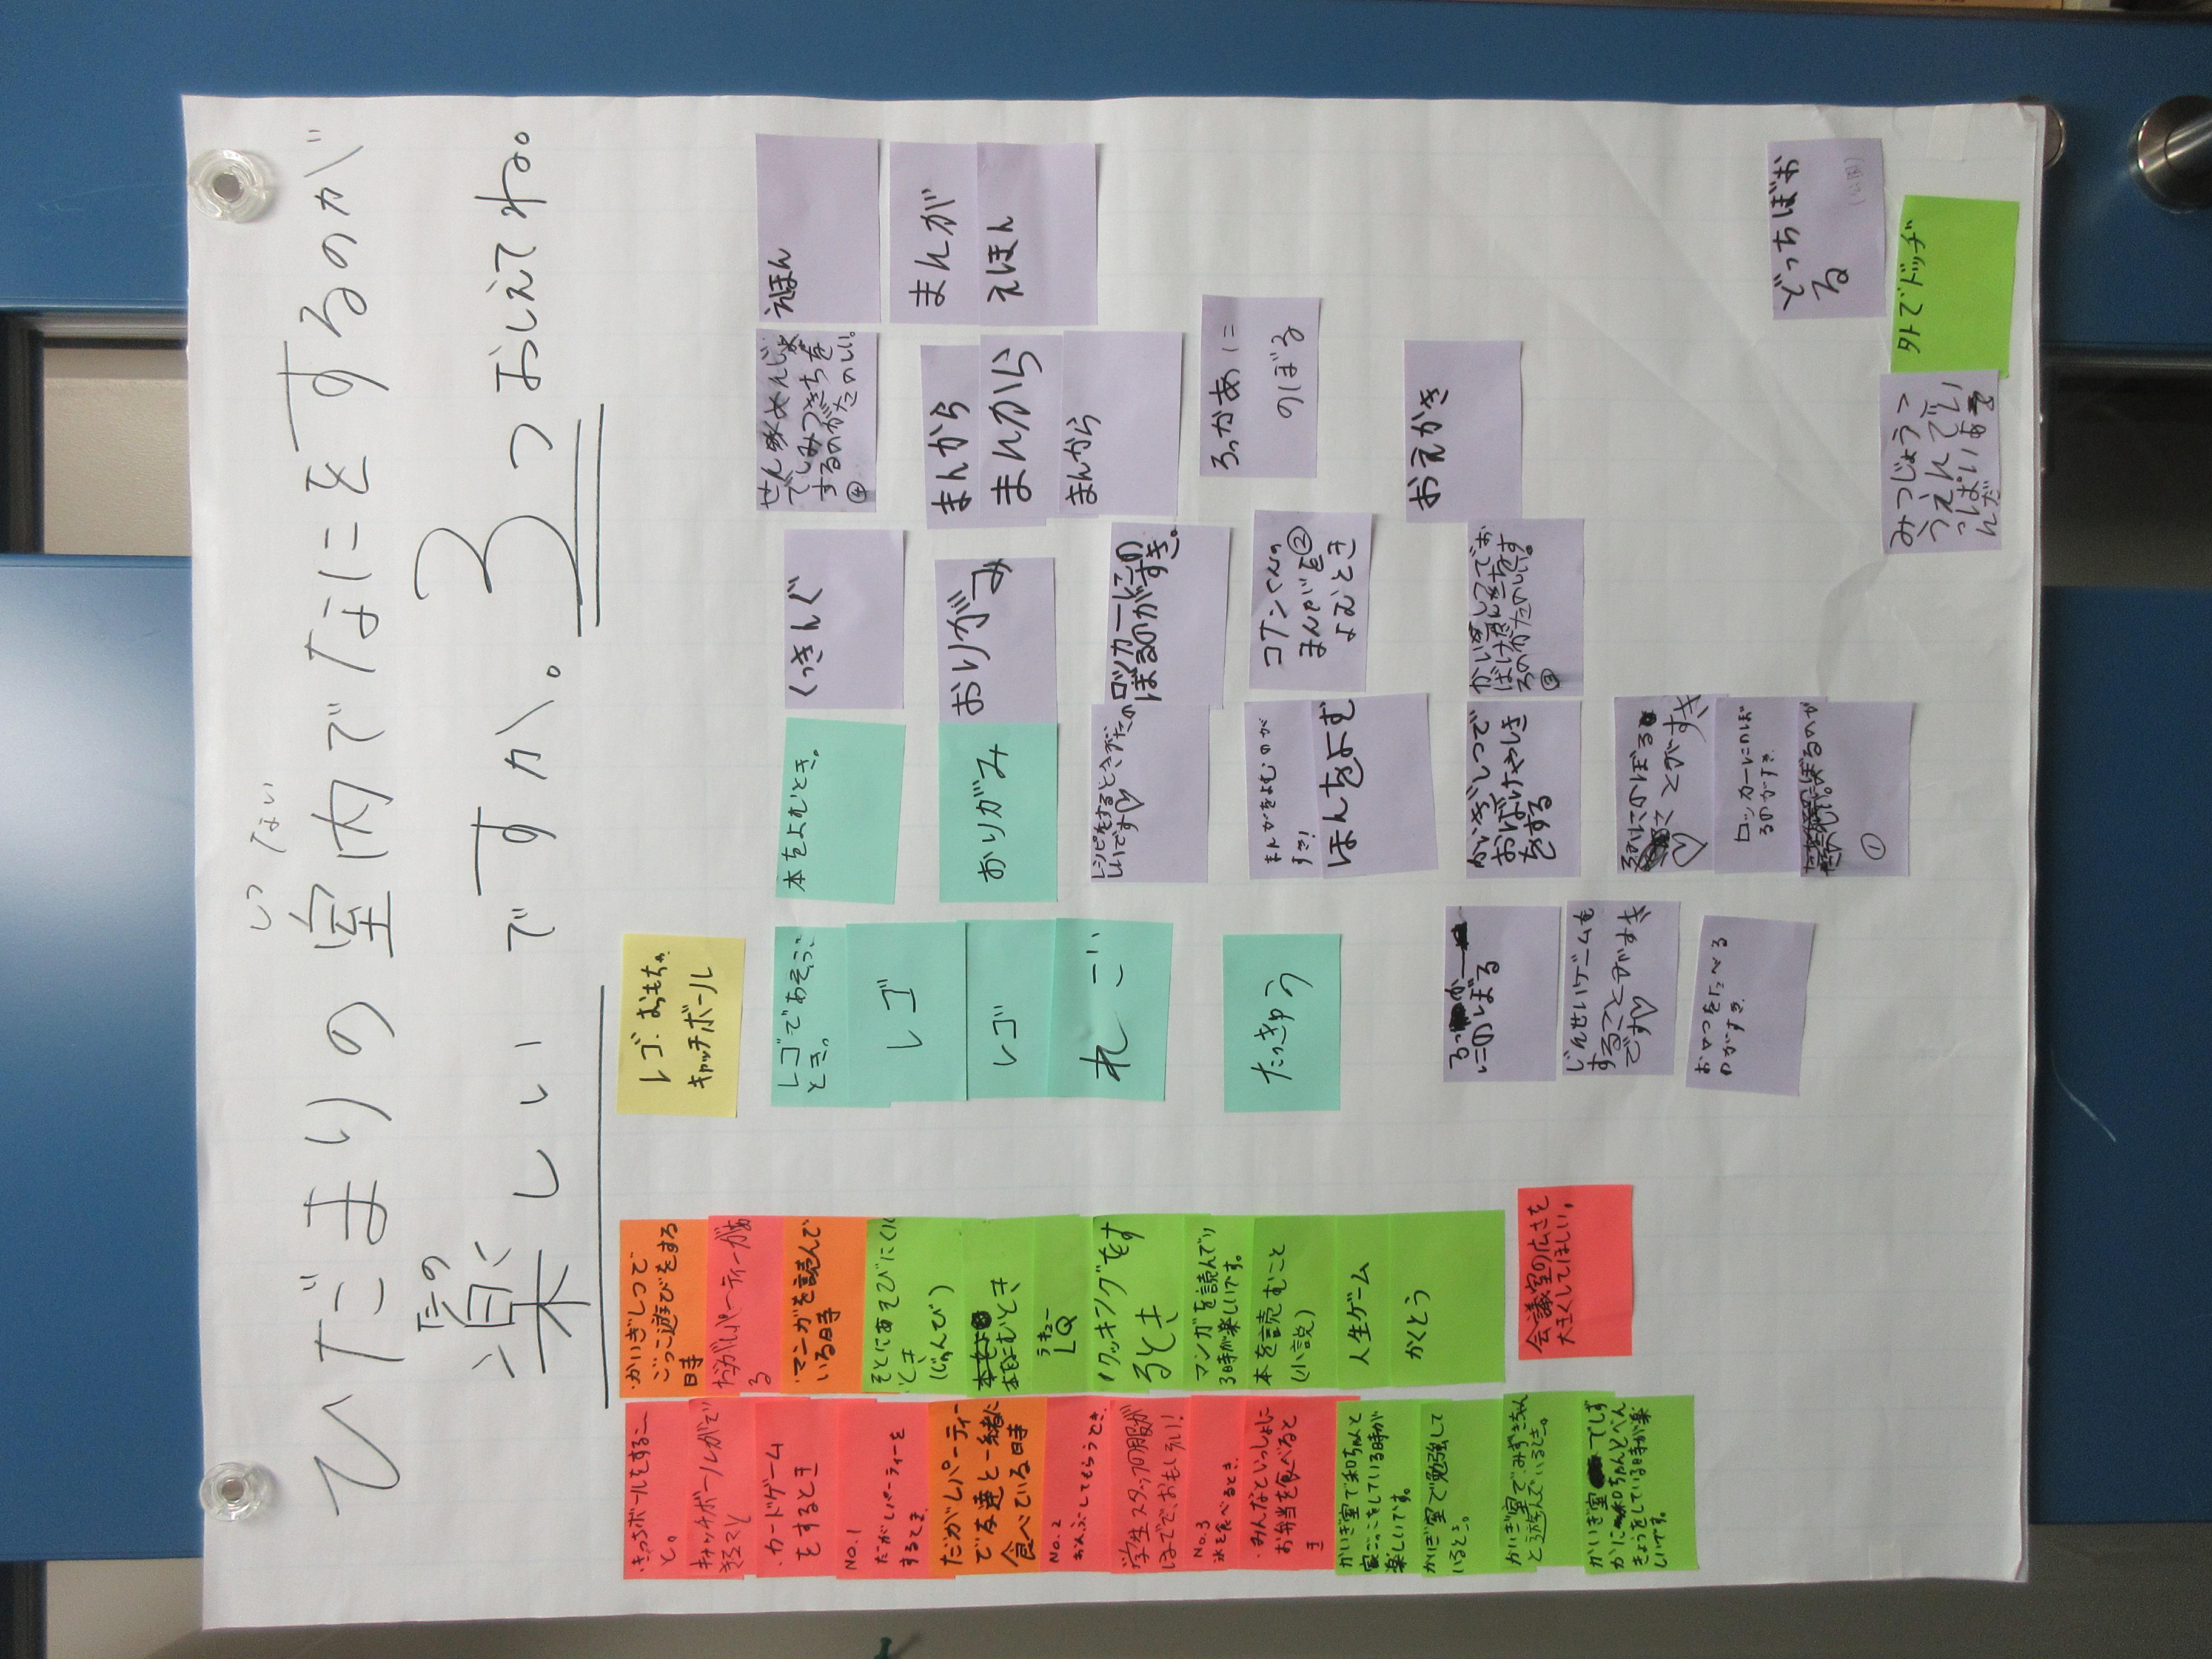 しつ ない
ひだまりの室内でなにをするのが
たの
楽しいですか。3つおしえてね。
・かいぎしつで
ごっこ遊びをする
時
だがしパーティーがあ
る
・マンガを読んで
いる時
そとにあそびにくり
とき
本をよむとき
ラキュー
LQ
クッキングをす
るとき
マンガを読んでい
る時が楽しいです。
本を読むこと
(小説)
人生ゲーム
かくとう
会議室の広さを
大きくしてほしい。
・きゃっちボールをするこ
と。
キャッチボールができ
・カードゲーム
をするとき
NO.1
だがしパーティーを
するとき
だがしパーティー
で友達と一緒に
食べている時
NO.2
おんぶしてもらうとき。
学生スタッフの服が
NO.3
氷を食べるとき。
・みんなといっしょに
お弁当を食べると
き
かいぎ室で和ちゃんと
家ごっこをしている時が
楽しいです。
かいぎ室で勉強して
いるとこ。
かいぎ室でみずきちゃん
と遊んでいるとき。
かいぎ室でしず
きょうをしている時が楽
しいです。
レゴ・おもちゃ
キャッチボール
レゴであそぶ
とき。
レゴ
レゴ
れご
たっきゅう
本をよむとき。
おりがみ
くっきんぐ
おりがみ
レシピをするときがたの
しいです♡
まんがをよむのが
すき!
ほんをよむ
かいぎしつで
おばけやしき
をする
ことがすき
♡
ロッカーにのぼ
るのがすき。
①
にのぼる
じんせいゲームを
することがすき
です♡
おやつをたべる
のがすき。
ロッカーにの
ぼるのがすき。
コナンくんの
まんがを②
よむとき
るのがたのしい。
③
えほん
まんが
えほん
するのがたのしい。
④
まんから
まんから
まんから
ろっかあに
のぼる
おえかき
どっちぼお
る
(公園)
外でドッヂ
みつじょうこ
うえんでい
っぱいあそ
んだ